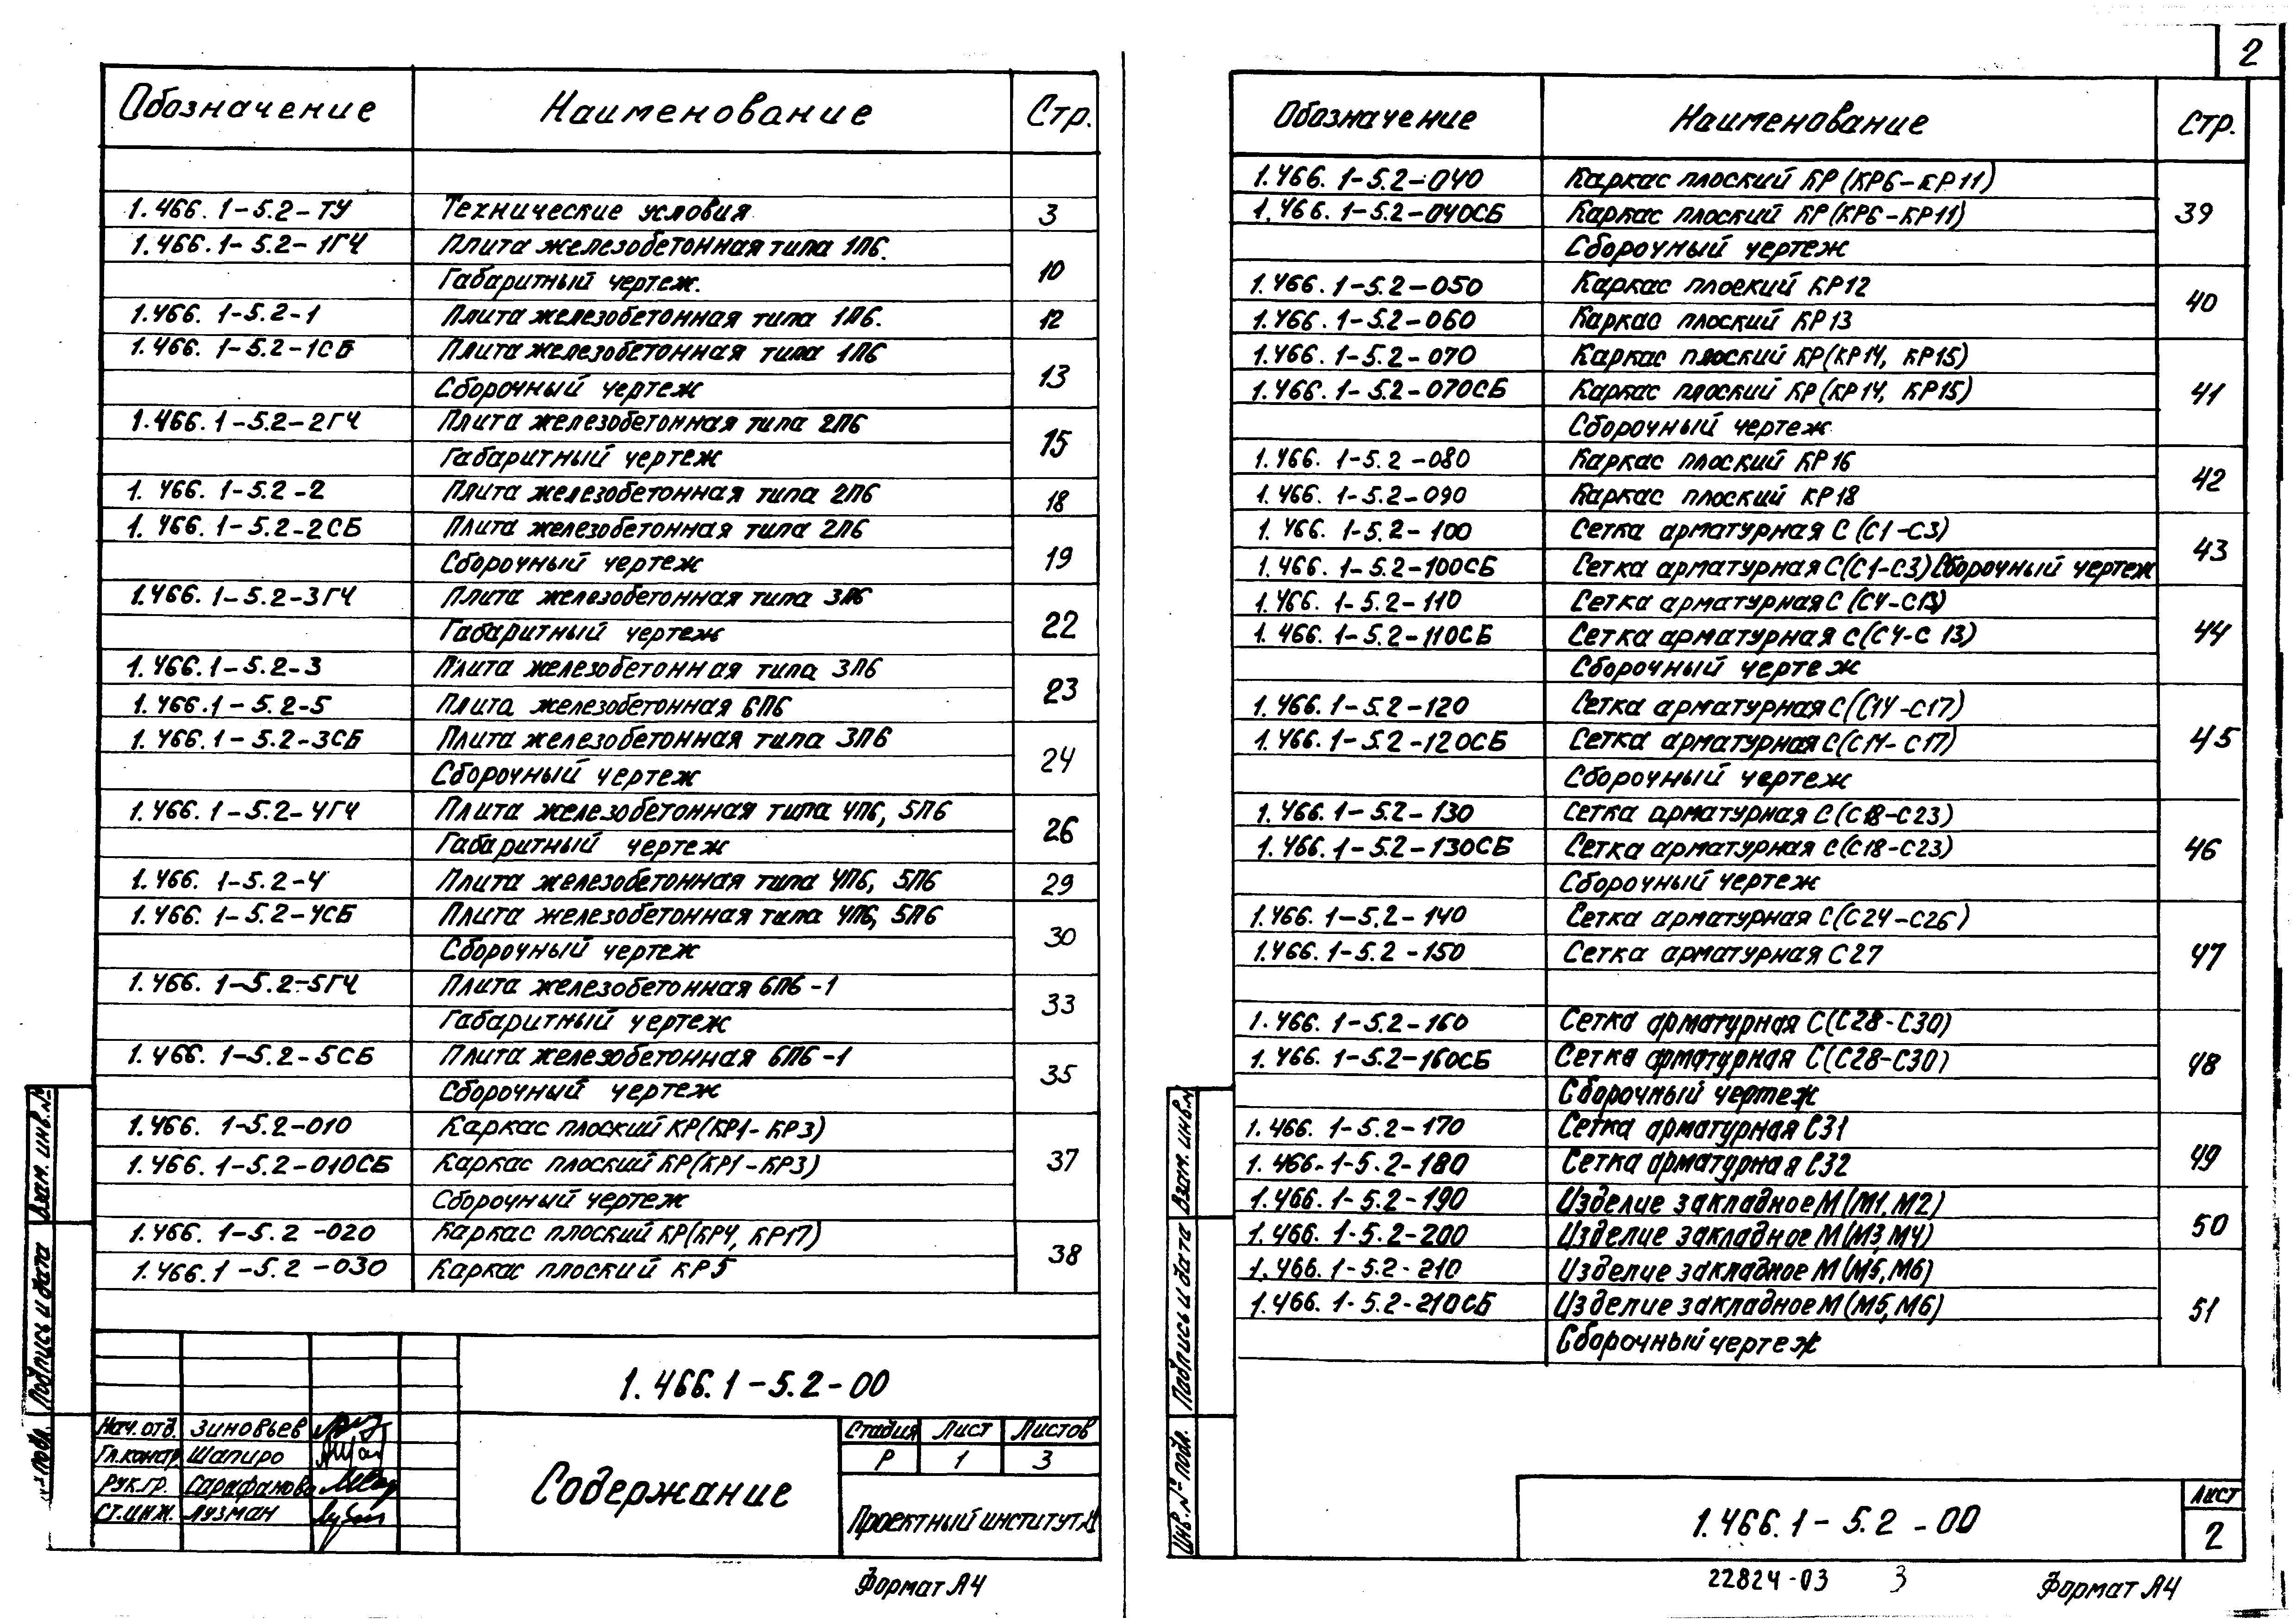 Обозначение Наименование Стр.
1.466.1-5.2-ТУ Технические условия 3
1.466.1-5.2-1ГЧ Плита железобетонная типа 1П6.
Габаритный чертеж. 10
1.466.1-5.2-1 Плита железобетонная типа 1П6. 12
1.466.1-5.2-1СБ Плита железобетонная типа 1П6
Сборочный чертеж 13
1.466.1-5.2-2ГЧ Плита железобетонная типа 2П6
Габаритный чертеж 15
1.466.1-5.2-2 Плита железобетонная типа 2П6 18
1.466.1-5.2-2СБ Плита железобетонная типа 2П6
Сборочный чертеж 19
1.466.1-5.2-3ГЧ Плита железобетонная типа 3П6
Габаритный чертеж 22
1.466.1-5.2-3 Плита железобетонная типа 3П6
1.466.1-5.2-5 Плита железобетонная 6П6 23
1.466.1-5.2-3СБ Плита железобетонная типа 3П6
Сборочный чертеж 24
1.466.1-5.2-4ГЧ Плита железобетонная типа 4П6, 5П6
Габаритный чертеж 26
1.466.1-5.2-4 Плита железобетонная типа 4П6, 5П6 29
1.466.1-5.2-4СБ Плита железобетонная типа 4П6, 5П6
Сборочный чертеж 30
1.466.1-5.2-5ГЧ Плита железобетонная 6П6-1
Габаритный чертеж 33
1.466.1-5.2-5СБ Плита железобетонная 6П6-1
Сборочный чертеж 35
1.466.1-5.2-010 Каркас плоский КР(КР1-КР3)
1.466.1-5.2-010СБ Каркас плоский КР(КР1-КР3) 37
Сборочный чертеж
1.466.1-5.2-020 Каркас плоский КР(КР4, КР17)
1.466.1-5.2-030 Каркас плоский КР5 38
Взам. инв.№
Подпись и дата
№ подл.
1.466.1-5.2-00
Нач.отд. Зиновьев
Гл.констр Шапиро
Рук.гр. Сарафанова
Ст.инж. Лузман
Содержание
Стадия Лист Листов
Р 1 3
Проектный институт №1
Формат А4
2
Обозначение Наименование Стр.
1.466.1-5.2-040 Каркас плоский КР(КР6-КР11)
1.466.1-5.2-040СБ Каркас плоский КР(КР6-КР11) 39
Сборочный чертеж
1.466.1-5.2-050 Каркас плоский КР12
1.466.1-5.2-060 Каркас плоский КР13 40
1.466.1-5.2-070 Каркас плоский КР(КР14, КР15)
1.466.1-5.2-070СБ Каркас плоский КР(КР14, КР15) 41
Сборочный чертеж
1.466.1-5.2-080 Каркас плоский КР16
1.466.1-5.2-090 Каркас плоский КР18 42
1.466.1-5.2-100 Сетка арматурная С(С1-С3)
1.466.1-5.2-100СБ Сетка арматурная С(С1-С3) Сборочный чертеж 43
1.466.1-5.2-110 Сетка арматурная С(С4-С13)
1.466.1-5.2-110СБ Сетка арматурная С(С4-С13) 44
Сборочный чертеж
1.466.1-5.2-120 Сетка арматурная С(С14-С17)
1.466.1-5.2-120СБ Сетка арматурная С(С14-С17) 45
Сборочный чертеж
1.466.1-5.2-130 Сетка арматурная С(С18-С23)
1.466.1-5.2-130СБ Сетка арматурная С(С18-С23) 46
Сборочный чертеж
1.466.1-5.2-140 Сетка арматурная С(С24-С26)
1.466.1-5.2-150 Сетка арматурная С27 47
1.466.1-5.2-160 Сетка арматурная С(С28-С30)
1.466.1-5.2-160СБ Сетка арматурная С(С28-С30) 48
Сборочный чертеж
1.466.1-5.2-170 Сетка арматурная С31
1.466.1-5.2-180 Сетка арматурная С32 49
1.466.1-5.2-190 Изделие закладное М(М1, М2)
1.466.1-5.2-200 Изделие закладное М(М3, М4) 50
1.466.1-5.2-210 Изделие закладное М(М5, М6)
1.466.1-5.2-210СБ Изделие закладное М(М5, М6) 51
Сборочный чертеж
Взам. инв.№
Подпись и дата
Инв.№ подл.
1.466.1-5.2-00
Лист
2
22824-03 3
Формат А4